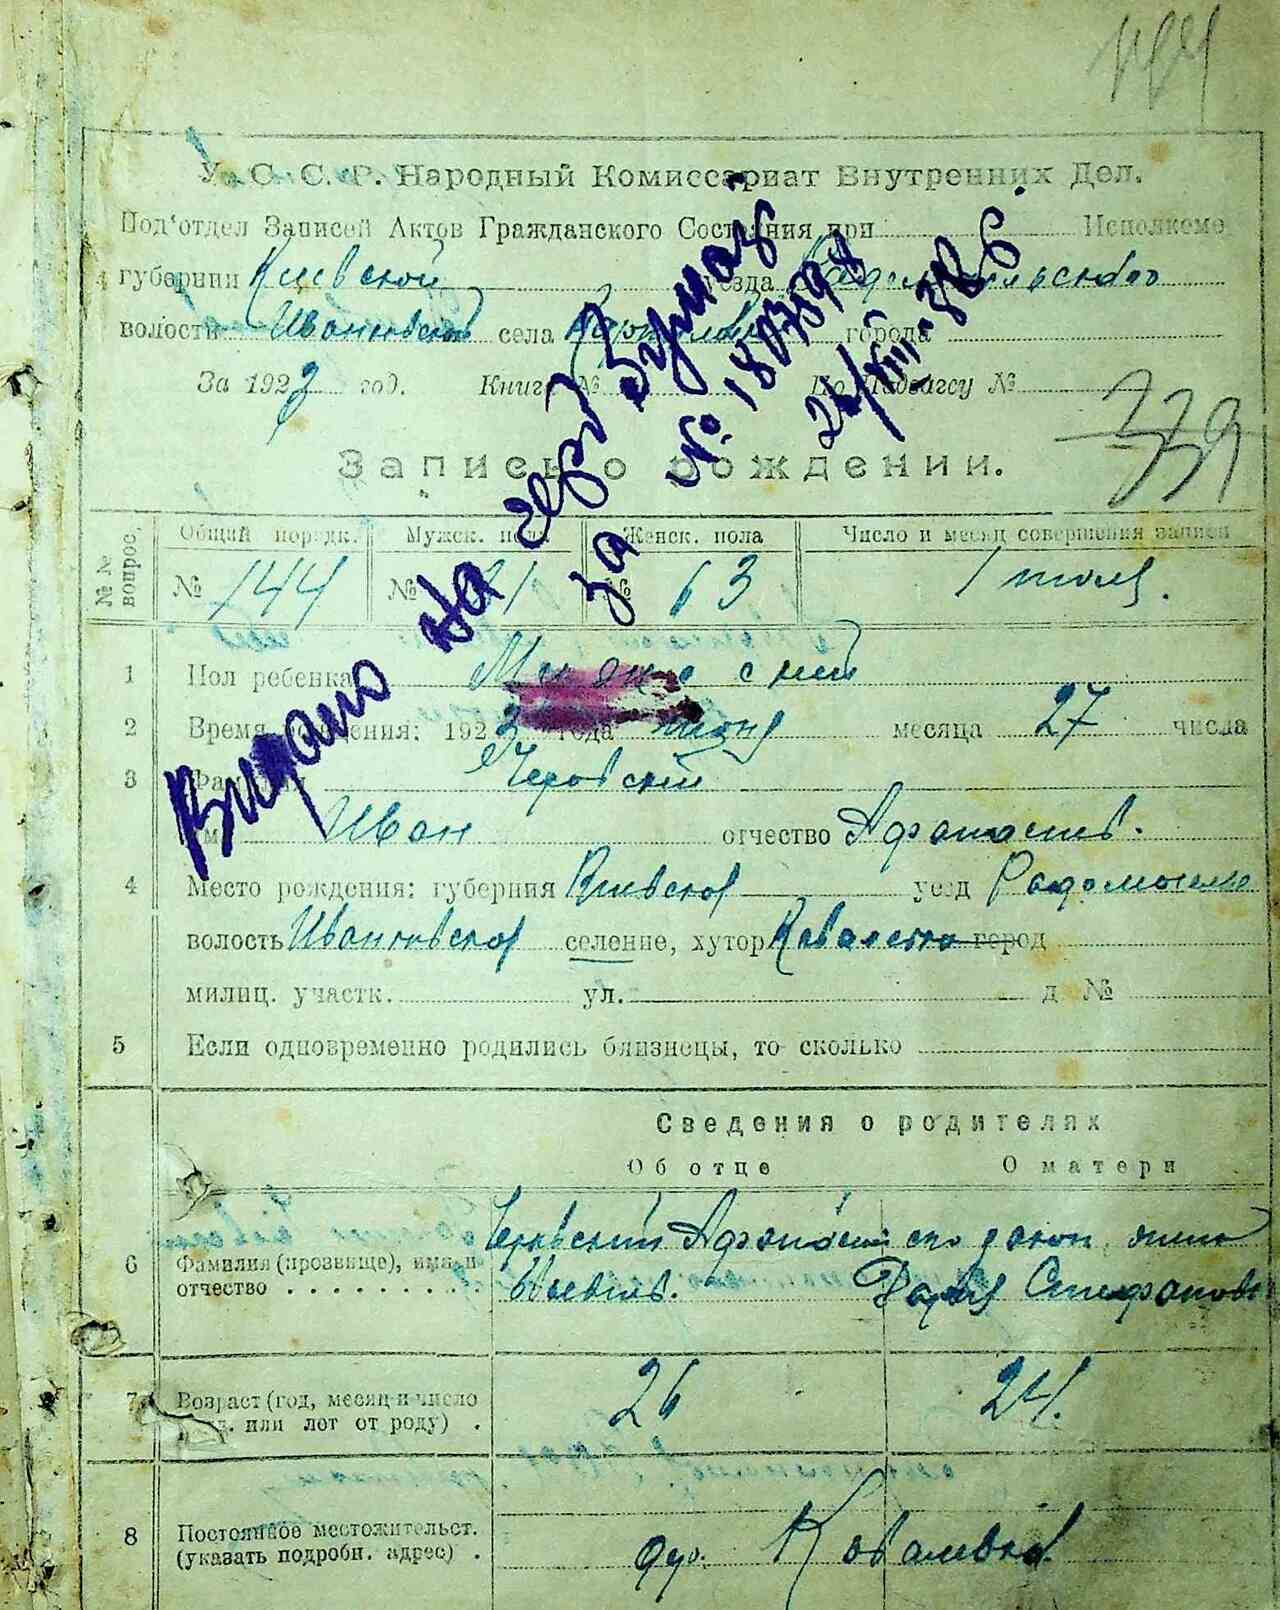 У. С. С. Р. Народный Комиссариат Внутренних Дел.
Под'отдел Записей Актов Гражданского Состояния при Исполкоме
губернии Киевской уезда
волости Иванковской села города
За 1923 год. Книга № По Подзагсу №
339
Запись о рождении.
№№ вопрос. Общий порядк. Мужск. пола Женск. пола Число и месяц совершения записи
№ 144 № 81 № 63 1 июля.
1 Пол ребенка Мужской
2 Время рождения: 1923 года июня месяца 27 числа
3 Фамилия Черовский
имя Иван отчество Афанасиев.
4 Место рождения: губерния Киевской уезд Радомысль
волость Иванковской селение, хутор Ковалевка город
милиц. участк. ул. д №
5 Если одновременно родились близнецы, то сколько
Сведения о родителях
Об отце О матери
6 Фамилия (прозвище), имя и
отчество
Афанасий его закон. жена
Дарья Стефанов
7 Возраст (год, месяц и число
рожд. или лет от роду) . 26 24.
8 Постоянное местожительст.
(указать подробн. адрес) . дер. Ковалевка
Видано на серб бумаг
за № 1807598